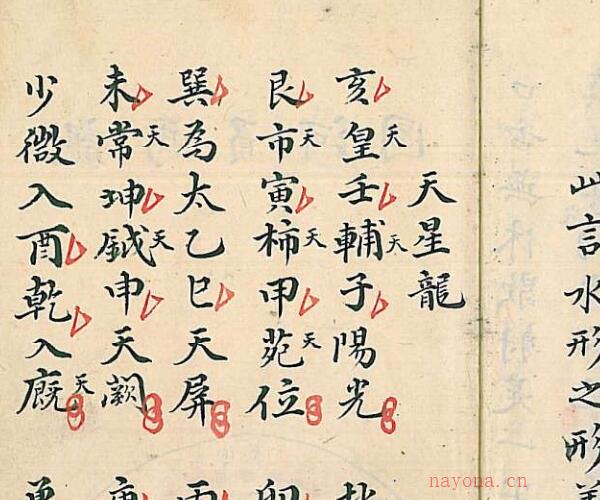 此言水形之形
天星龍
亥天皇壬天輔子陽光
艮天市寅天柿甲天苑位
巽為太乙巳天屏
未天常坤天鉞申天闕
少微入酉乾入天廐
nayona.cn